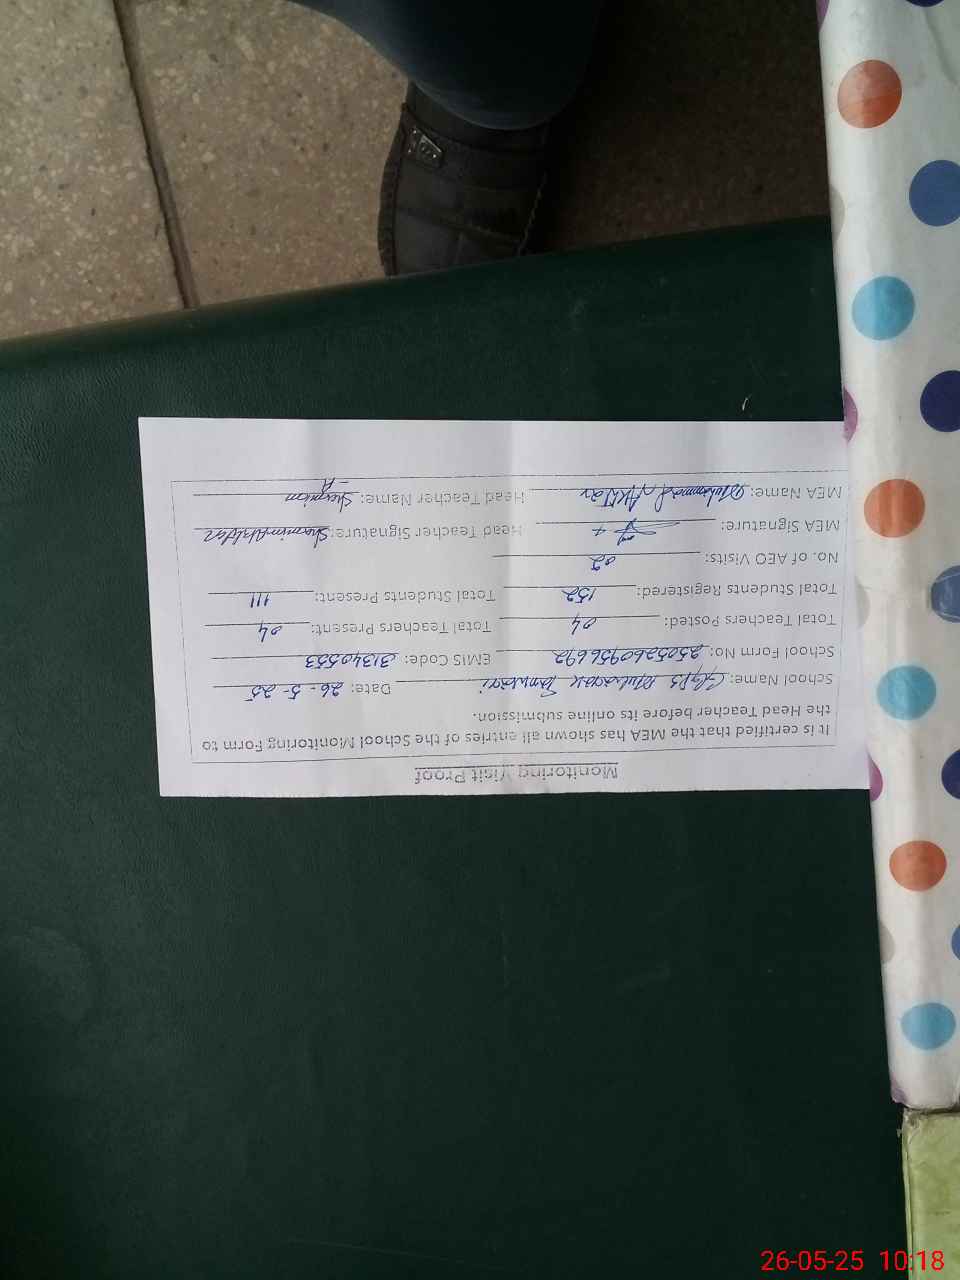 Monitoring Visit Proof
It is certified that the MEA has shown all entries of the School Monitoring Form to
the Head Teacher before its online submission.
School Name: GGPS Mubarak Date: 26-5-25
School Form No: 2505260956692 EMIS Code: 31340553
Total Teachers Posted: 04 Total Teachers Present: 04
Total Students Registered: 152 Total Students Present: 111
No. of AEO Visits: 02
MEA Signature: Head Teacher Signature: Shamim Akhtar
MEA Name: Muhammad Akhtar Head Teacher Name:
26-05-25 10:18